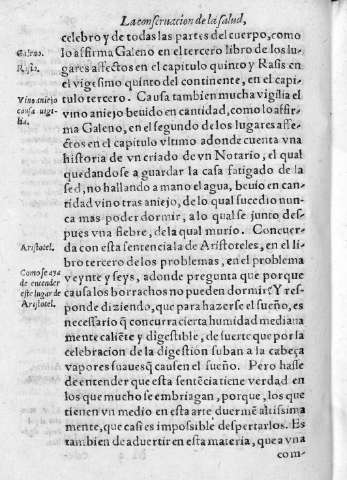 La conseruacion de la salud,
celebro y de todas las partes del cuerpo, como
Galeno.
lo affirma Galeno en el tercero libro de los lu-
Rasis.
gares affectos en el capitulo quinto y Rasis en
el vigesimo quinto del continente, en el capi-
Vino aniejo
tulo tercero. Causa tambien mucha vigilia el
causa uigi-
vino aniejo beuido en cantidad, como lo affir-
lia.
ma Galeno, en el segundo de los lugares affe-
ctos en el capitulo vltimo adonde cuenta vna
historia de vn criado de vn Notario, el qual
quedandose a guardar la casa fatigado de la
sed, no hallando a mano el agua, beuio en can-
tidad vino tras aniejo, de lo qual sucedio nun-
ca mas poder dormir, a lo qual se junto des-
pues vna fiebre, de la qual murio. Concuer-
Aristotel.
da con esta sentencia la de Aristoteles, en el li-
bro tercero de los problemas, en el problema
Como se aya
veynte y seys, adonde pregunta que porque
de entender
este lugar de
causa los borrachos no pueden dormir? Y res-
Aristotel.
ponde diziendo, que para hazerse el sueño, es
necessario q̃ concurra cierta humidad mediana
mente caliẽte y digestible, de suerte que por la
celebracion de la digestion suban a la cabeça
vapores suaues q̃ causen el sueño. Pero hase
de entender que esta sentẽcia tiene verdad en
los que mucho se embriagan, porque, los que
tienen vn medio en esta arte duermẽ altissima
mente, que casi es impossible despertarlos. Es
tambien de aduertir en esta materia, que a vna
com-